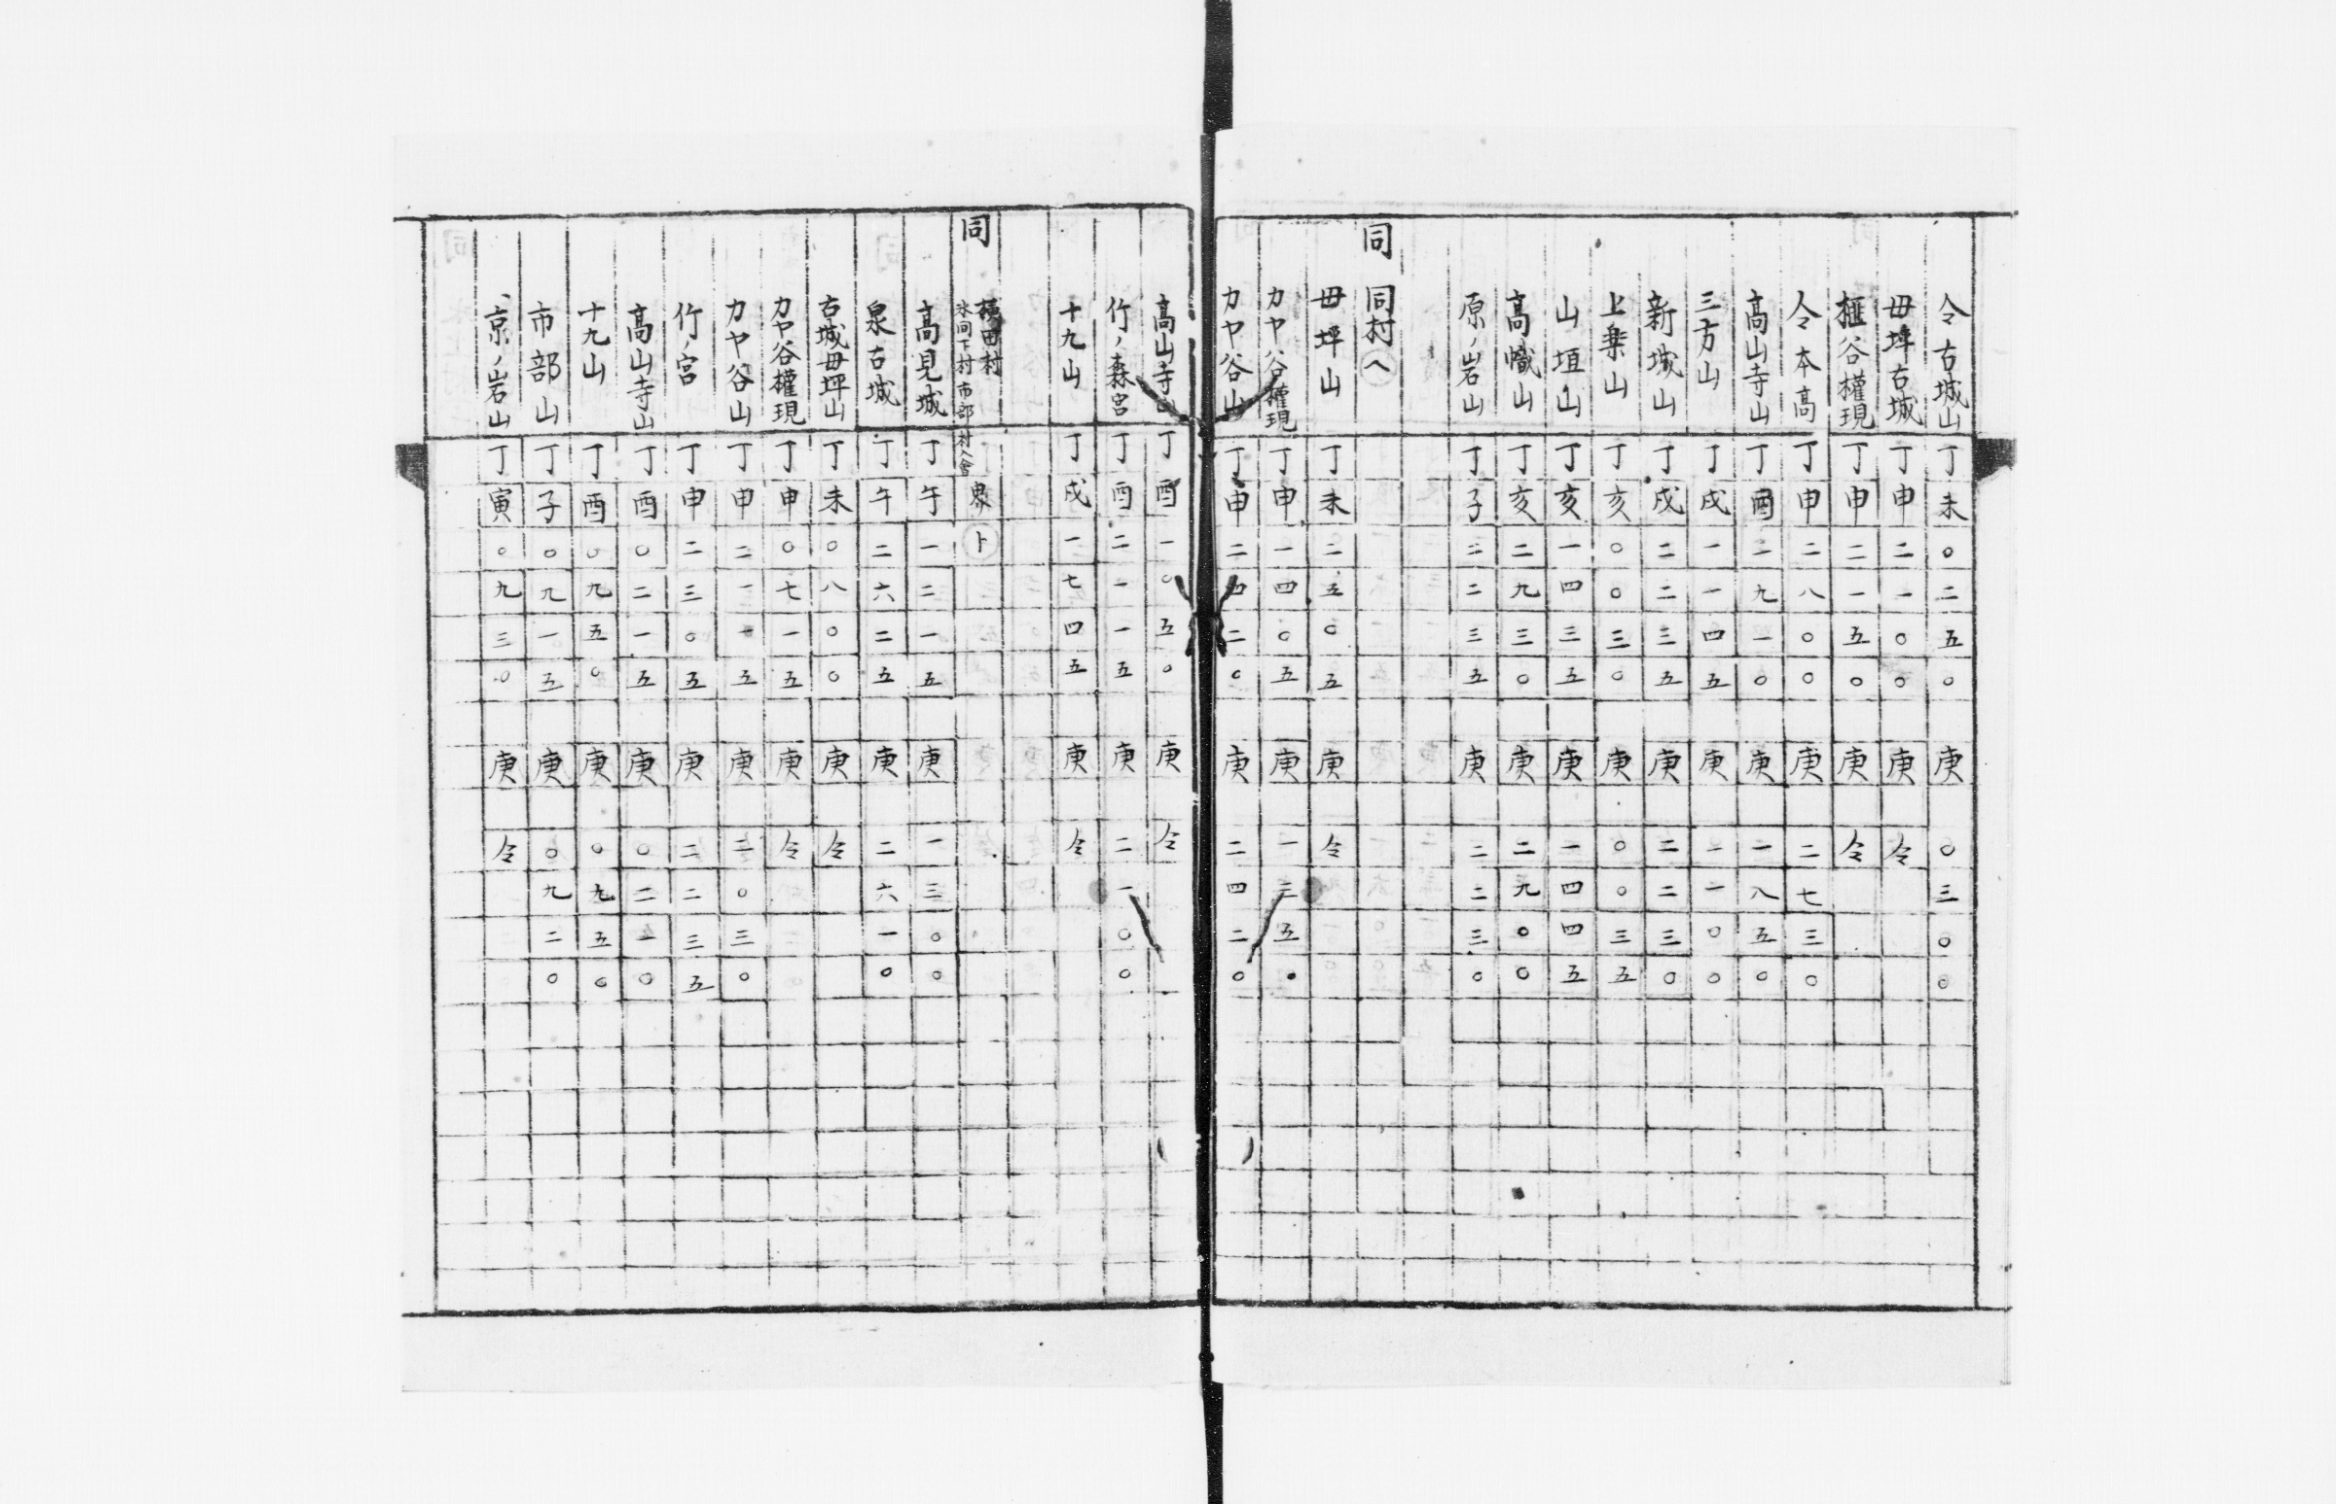 令古城山 丁未〇二五〇 庚 〇三〇〇
毋坪古城 丁申二一〇〇 庚 仝
榧谷權現 丁申二一五〇 庚 仝
令本高 丁申二八〇〇 庚 二七三〇
高山寺山 丁酉二九一〇 庚 一八五〇
三方山 丁戌一一四五 庚 一一〇〇
新城山 丁戌二二三五 庚 二二三〇
上乗山 丁亥〇〇三〇 庚 〇〇三五
山垣山 丁亥一四三五 庚 一四四五
高幟山 丁亥二九三〇 庚 二九〇〇
原ノ岩山 丁子二二三五 庚 二二三〇
同 同村㋬
毋坪山 丁未二五〇五 庚 仝
カヤ谷權現 丁申一四〇五 庚 一三五〇
カヤ谷山 丁申二四二〇 庚 二四二〇
高山寺山 丁酉一〇五〇 庚 仝
竹ノ森宮 丁酉二一一五 庚 二一〇〇
十九山 丁戌一七四五 庚 仝
同 田村
氷間下村市部村入會 界㋣
高見城 丁午一二一五 庚 一三〇〇
泉古城 丁午二六二五 庚 二六一〇
古城毋坪山 丁未〇八〇〇 庚 仝
カヤ谷權現 丁申〇七一五 庚 仝
カヤ谷山 丁申二一一五 庚 二〇三〇
竹ノ宮 丁申二三〇五 庚 二二三五
高山寺山 丁酉〇二一五 庚 〇二一〇
十九山 丁酉〇九五〇 庚 〇九五〇
市部山 丁子〇九一五 庚 〇九二〇
京ノ岩山 丁寅〇九三〇 庚 仝